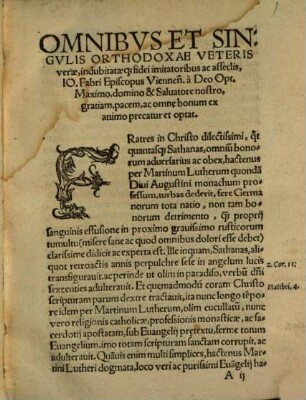 OMNIBVS ET SIN⸗
GVLIS ORTHODOXAE VETERIS
veræ, indubitatæq; fidei imitatoribus ac asseclis,
IO. Fabri Episcopus Viennen̄. à Deo Opt.
Maximo, domino & Saluatore nostro,
gratiam, pacem, ac omnē bonum ex
animo precatur et optat.
FRatres in Christo dilectissimi, q̄t
quantasq; Sathanas, omniū bono⸗
rum aduersarius ac obex, hactenus
per Martinum Lutherum quondā
Diui Augustini monachum pro⸗
fessum, turbas dederit, fere Ger
manorum tota natio, non tam bo⸗
norum detrimento, q̄ȝ proprij
sanguinis effusione in proximo grauissimo rusticorum
tumultu (misere sane ac quod omnibus dolori esse debet)
clarissime didicit ac experta est. Ille inquam, Sathanas, ali⸗
quot retroactis annis perpulchre sese in angelum lucis
transfigurauit, ac perinde ut olim in paradiso, verbū dn̄i
sexcenties adulterauit. Et quemadmodū coram Christo
scripturam parum dextre tractauit, ita nunc longo tēpo⸗
re idem per Martinum Lutherum, olim cucullatū, nunc
vero religionis catholicæ, professionis monasticæ, ac sa⸗
cerdotij apostatam, sub Euangelij prętextu, ferme totum
Euangelium, imo totam scripturam sanctam corrupit, ac
adulterauit. Quāuis enim multi simplices, hactenus Mar⸗
tini Lutheri dogmata, loco veri ac purissimi Euāgelij ha⸗
2. Cor. 11:
Matthei. 4.
A ij